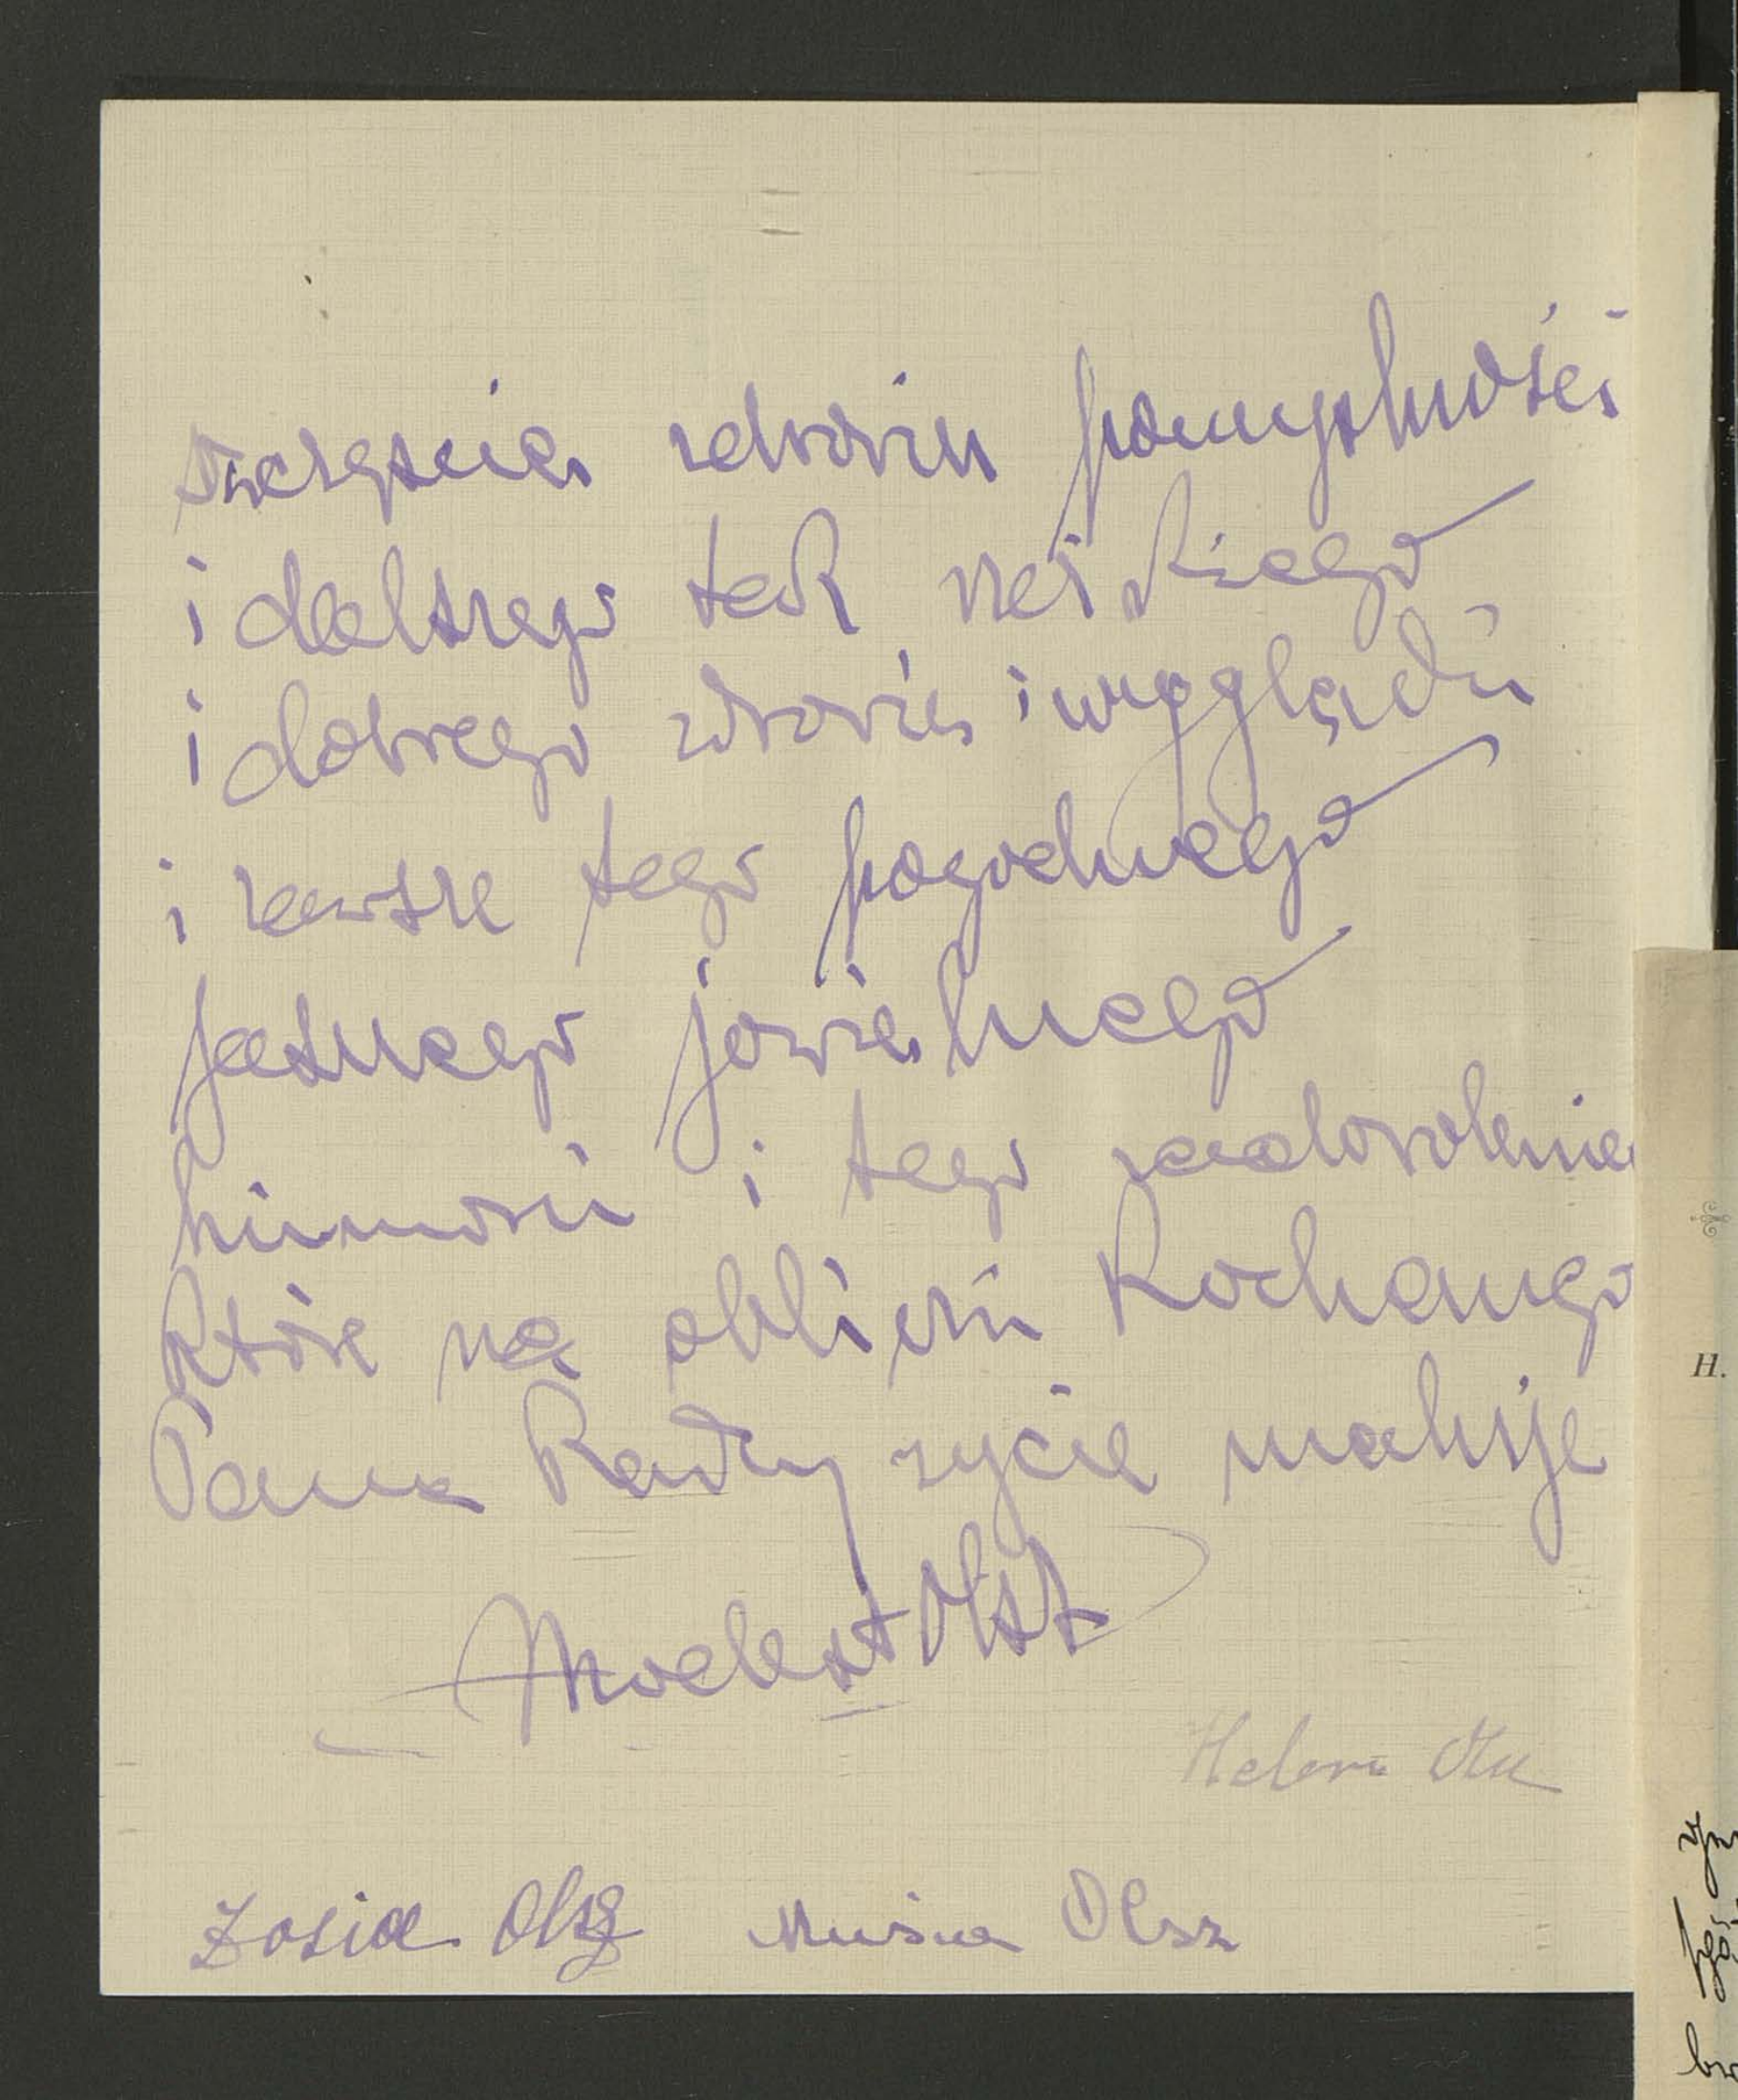 szczęścia zdrowia pomyślności
i dalszego tak
i dobrego zdrowia i wyglądu
i zawsze tego pogodnego
jasnego jowialnego
humoru i tego zadowolenia
które na obliczu Kochanego
Pana Radcy życie maluje
Modest Olsz
Helena
Zosia Olsz Musia Olsz
H.